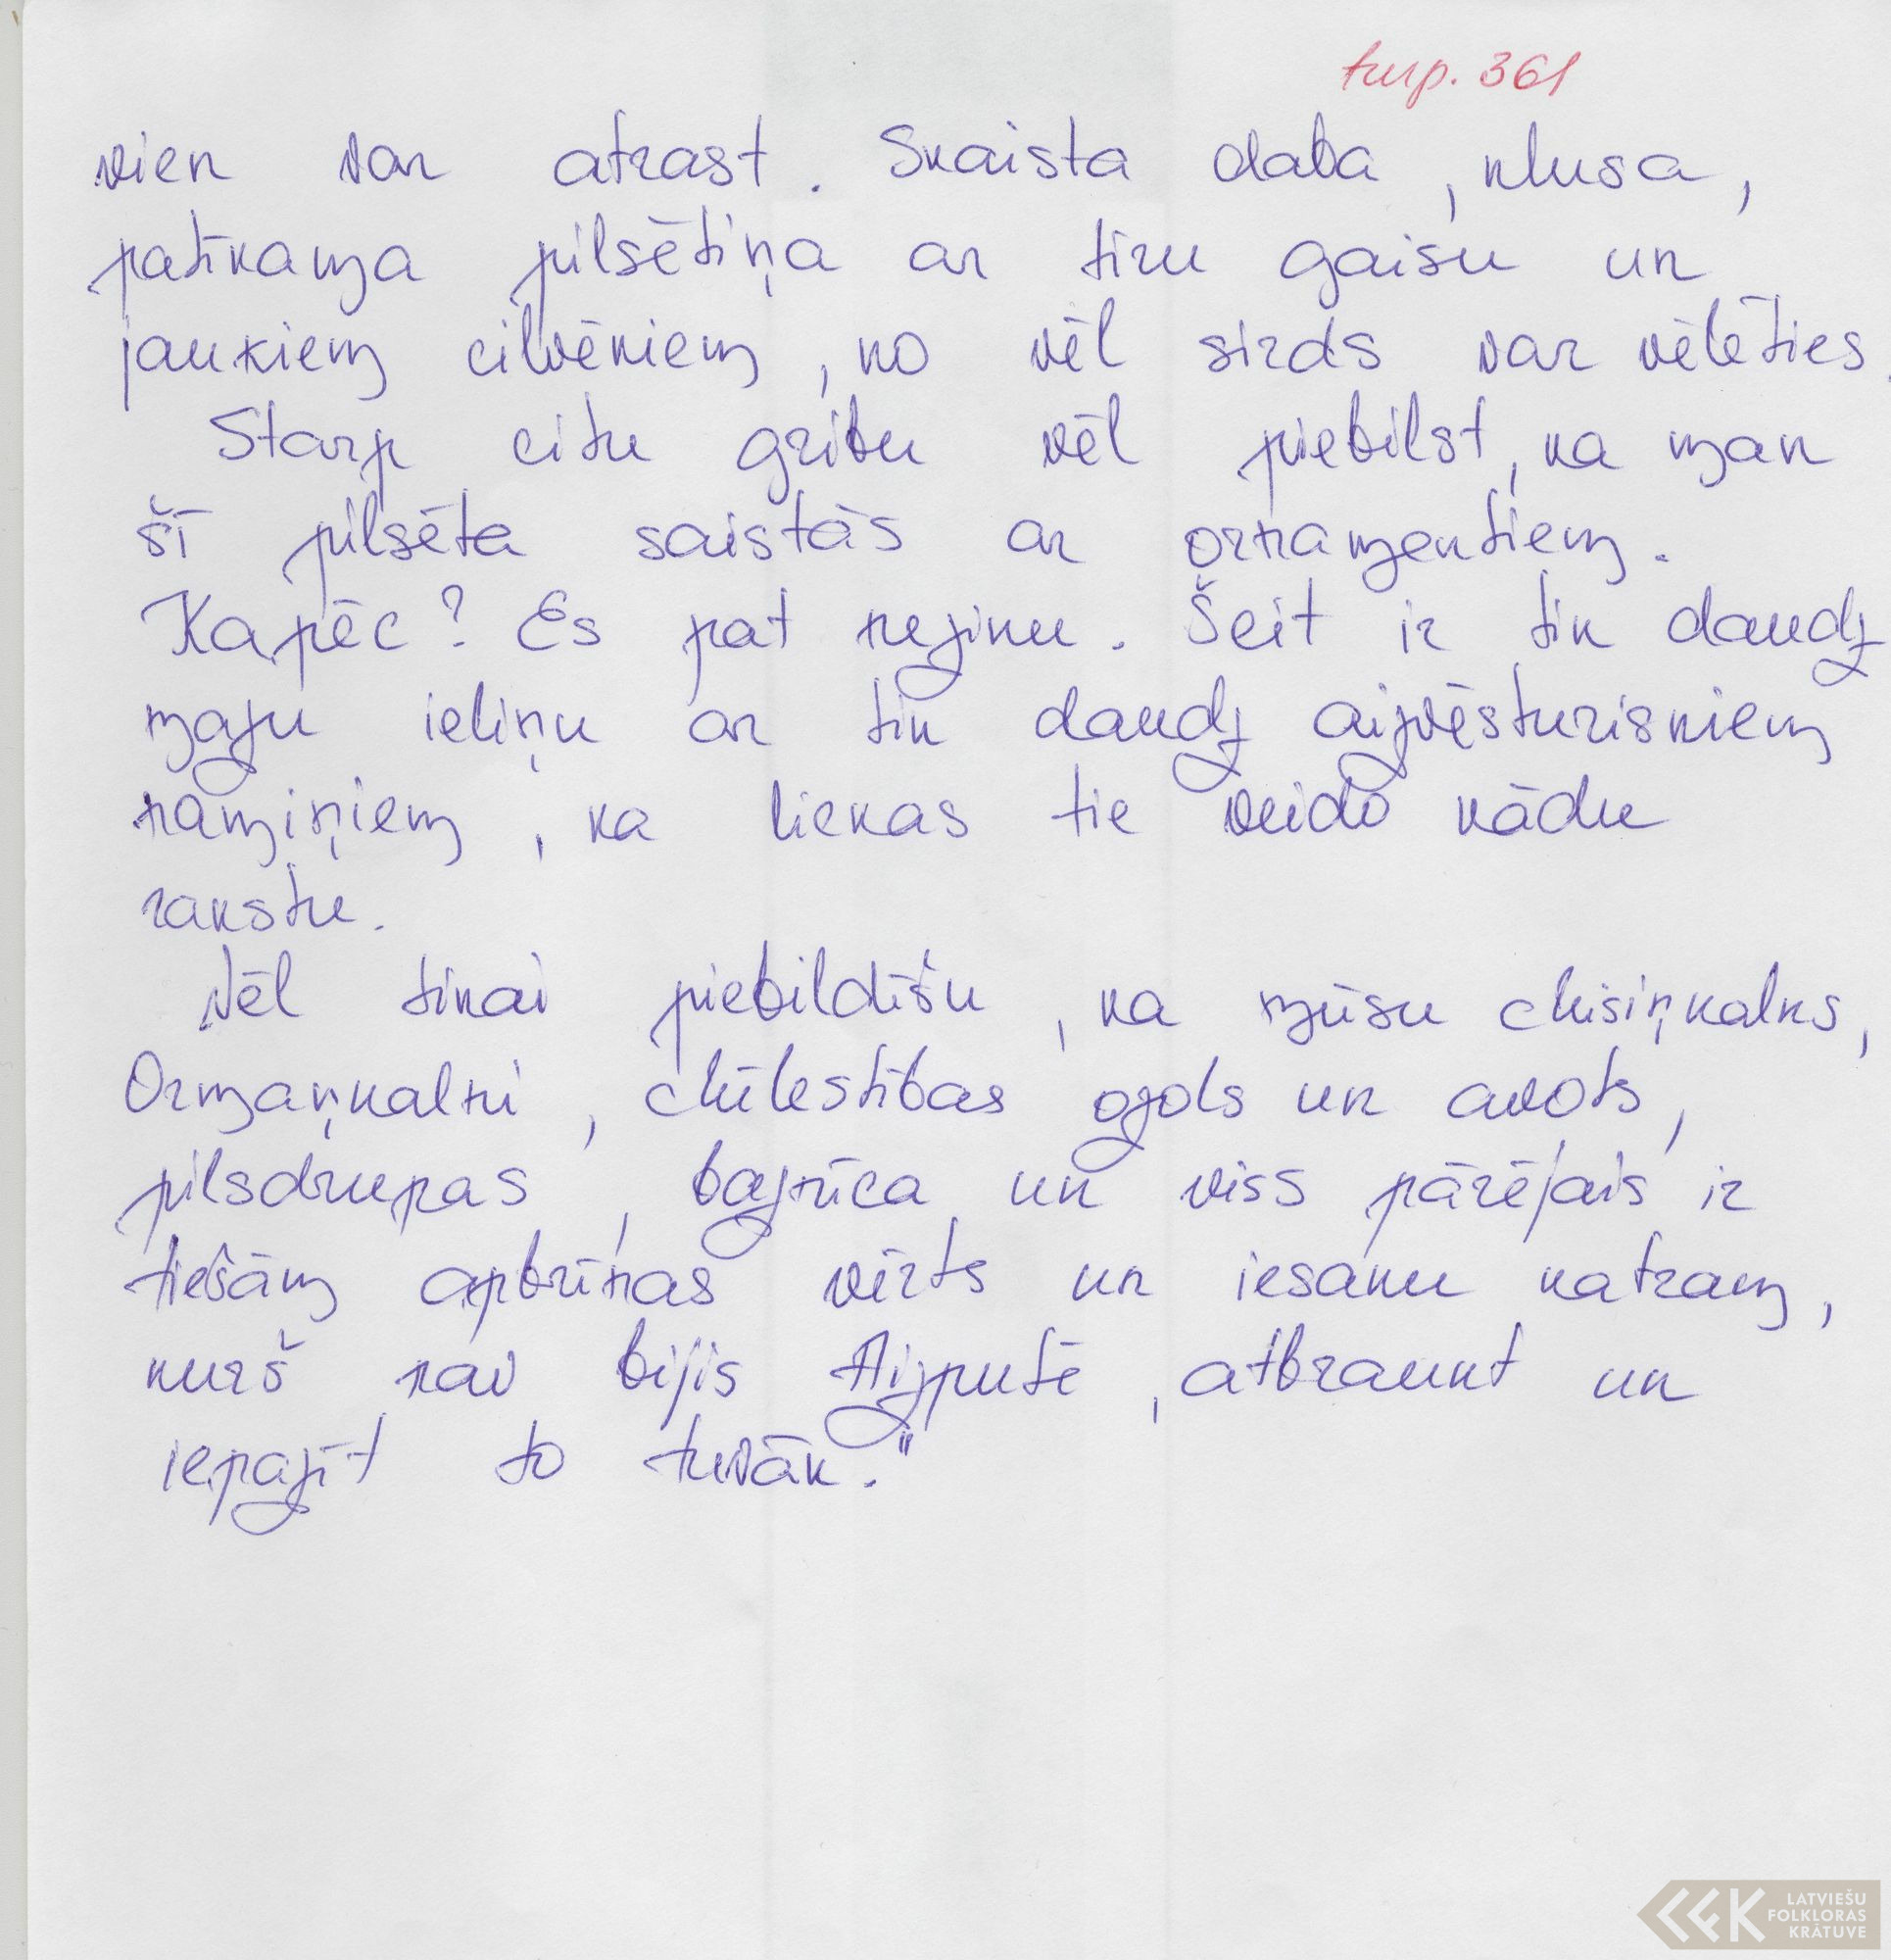 turp. 361
vien var atrast. Skaista daba, klusa,
patīkama pilsētiņa ar tīru gaisu un
jaukiem cilvēkiem, ko vēl sirds var vēlēties.
Starp citu gribu vēl piebilst, ka man
šī pilsēta saistās ar ornamentiem.
Kāpēc? Es pat nezinu. Šeit ir tik daudz
mazu ieliņu ar tik daudz aizvēsturiskiem
namiņiem, ka liekas tie veido kādu
rakstu.
Vēl tikai piebildīšu, ka mūsu
Ormaņkalni, ozols un avots,
pilsdrupas, baznīca un viss pārējais ir
tiešām apbrīnas vērts un iesaku katram,
kurš nav bijis Aizputē, atbraukt un
iepazīt to tuvāk."
LATVIEŠU
FOLKLORAS
KRĀTUVE